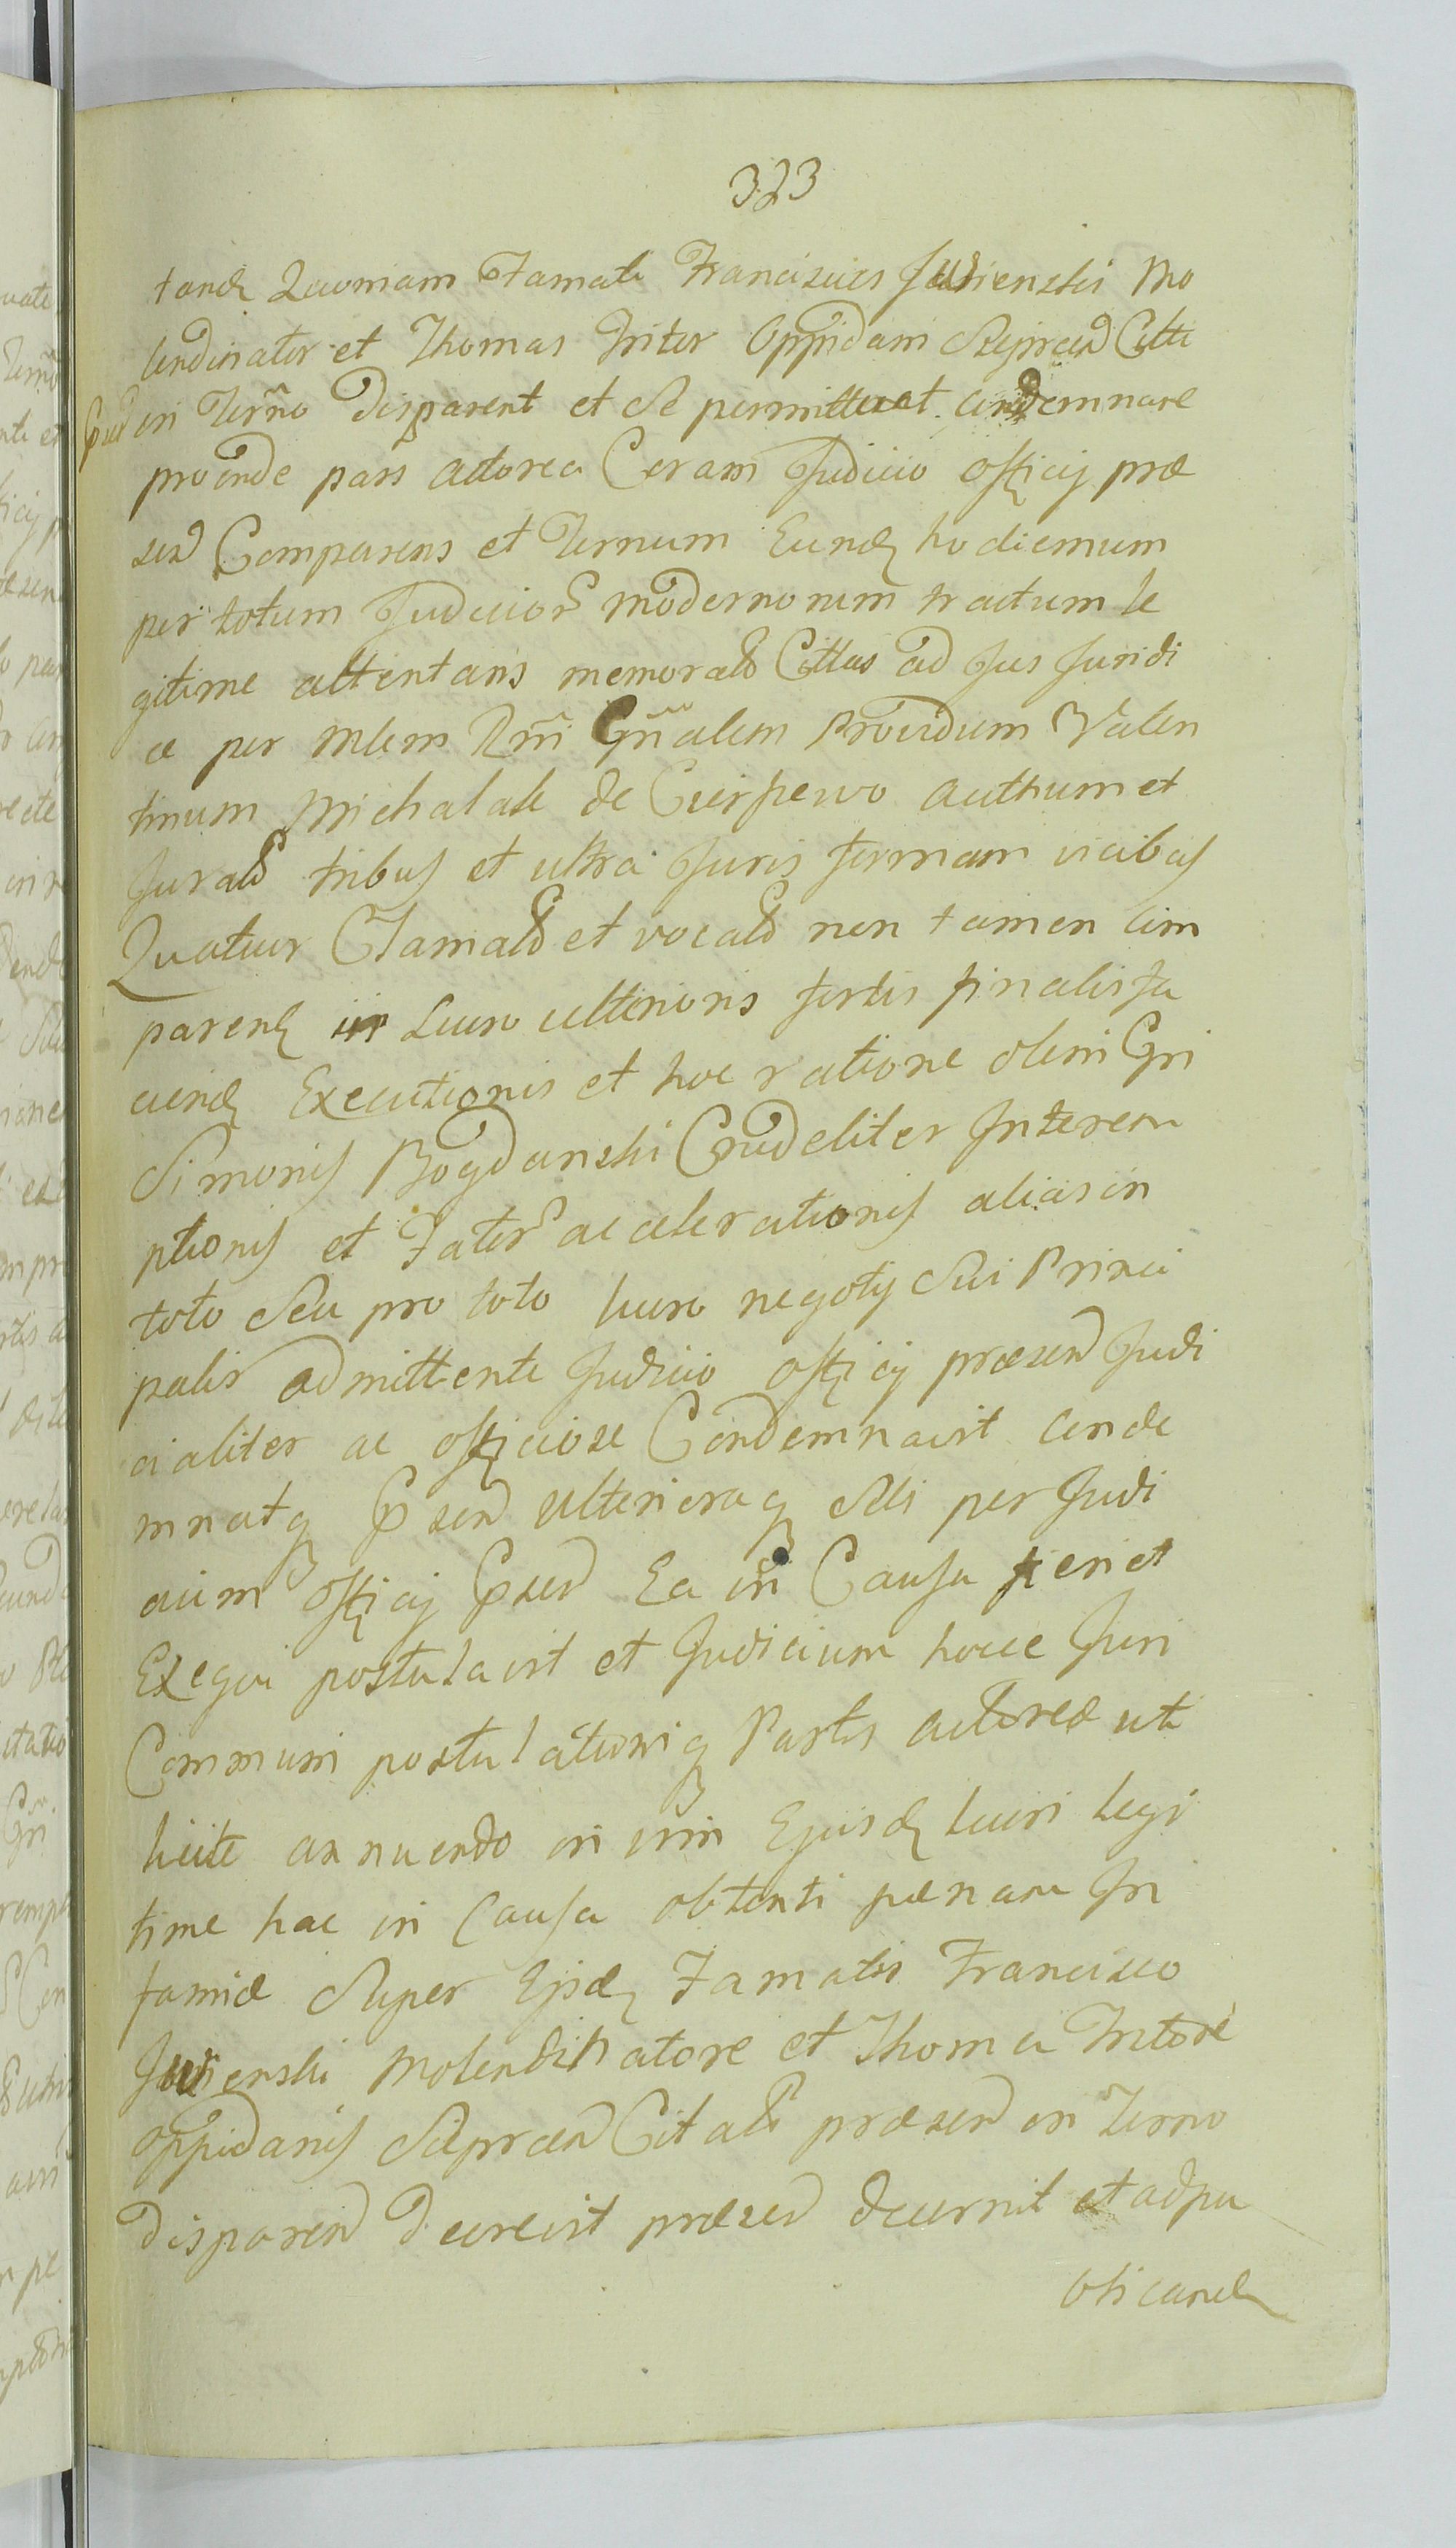 323
tand Quoniam Famati Franciscus Jurienski Mo
lendinator et Thomas Tritor Oppidani Siepraed Citti
Pnd in Termo disparent et se permitterent condemnare
proinde pars actorea Coram Judicio officij præ
sen Comparens et Ternum Eund hodiernum
per totum Judicior modernorum tractum le
gitime attentans memorats Cittos ad Jus Juridi
ce per Mlem Rni Gnalem Providum Valen
tinum Michalak de Cierpewo authum et
Jurats tribus et ultra Juris formam vicibus
Quatuor Clamats et vocats non tamen com
parend in Lucro ulterioris fortis finalis fa
ciend Executionis et hoc ratione olim Gni
Simonis Bogdanski Crudeliter Interem
ptionis et Fator accelerationis alias in
toto Seu pro toto lucro negotij Sui Princi
palis admittente Judicio officij præsen Judi
cialiter ac officiose Condemnavit conde
mnatq Psen ulterioraq Sibi per Judi
cium officij Psen Ea in Causa fieri et
Exequi postulavit et Judicium hocce Juri
Communi postulationiq Partis actoreæ uti
licite annuendo in vim Ejusd lucri legi
time hac in Causa obtenti pænam In
famiæ Super Ijsd Famatis Francisco
Jurienski Molendinatore et Thoma Tritore
oppidanis Siepraed Citats præsen in Termo
disparen decrevit præsen decernit et adpu
blicand